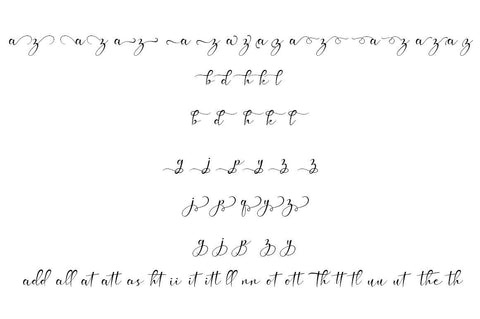 a z a z a z a z a z a z a z a z a z a z
b d h k l
b d h k l
g j p y z z
j p q y z
g j p z y
add all at att as ht ii it itt ll nn ot ott Th tt tl uu ut the th